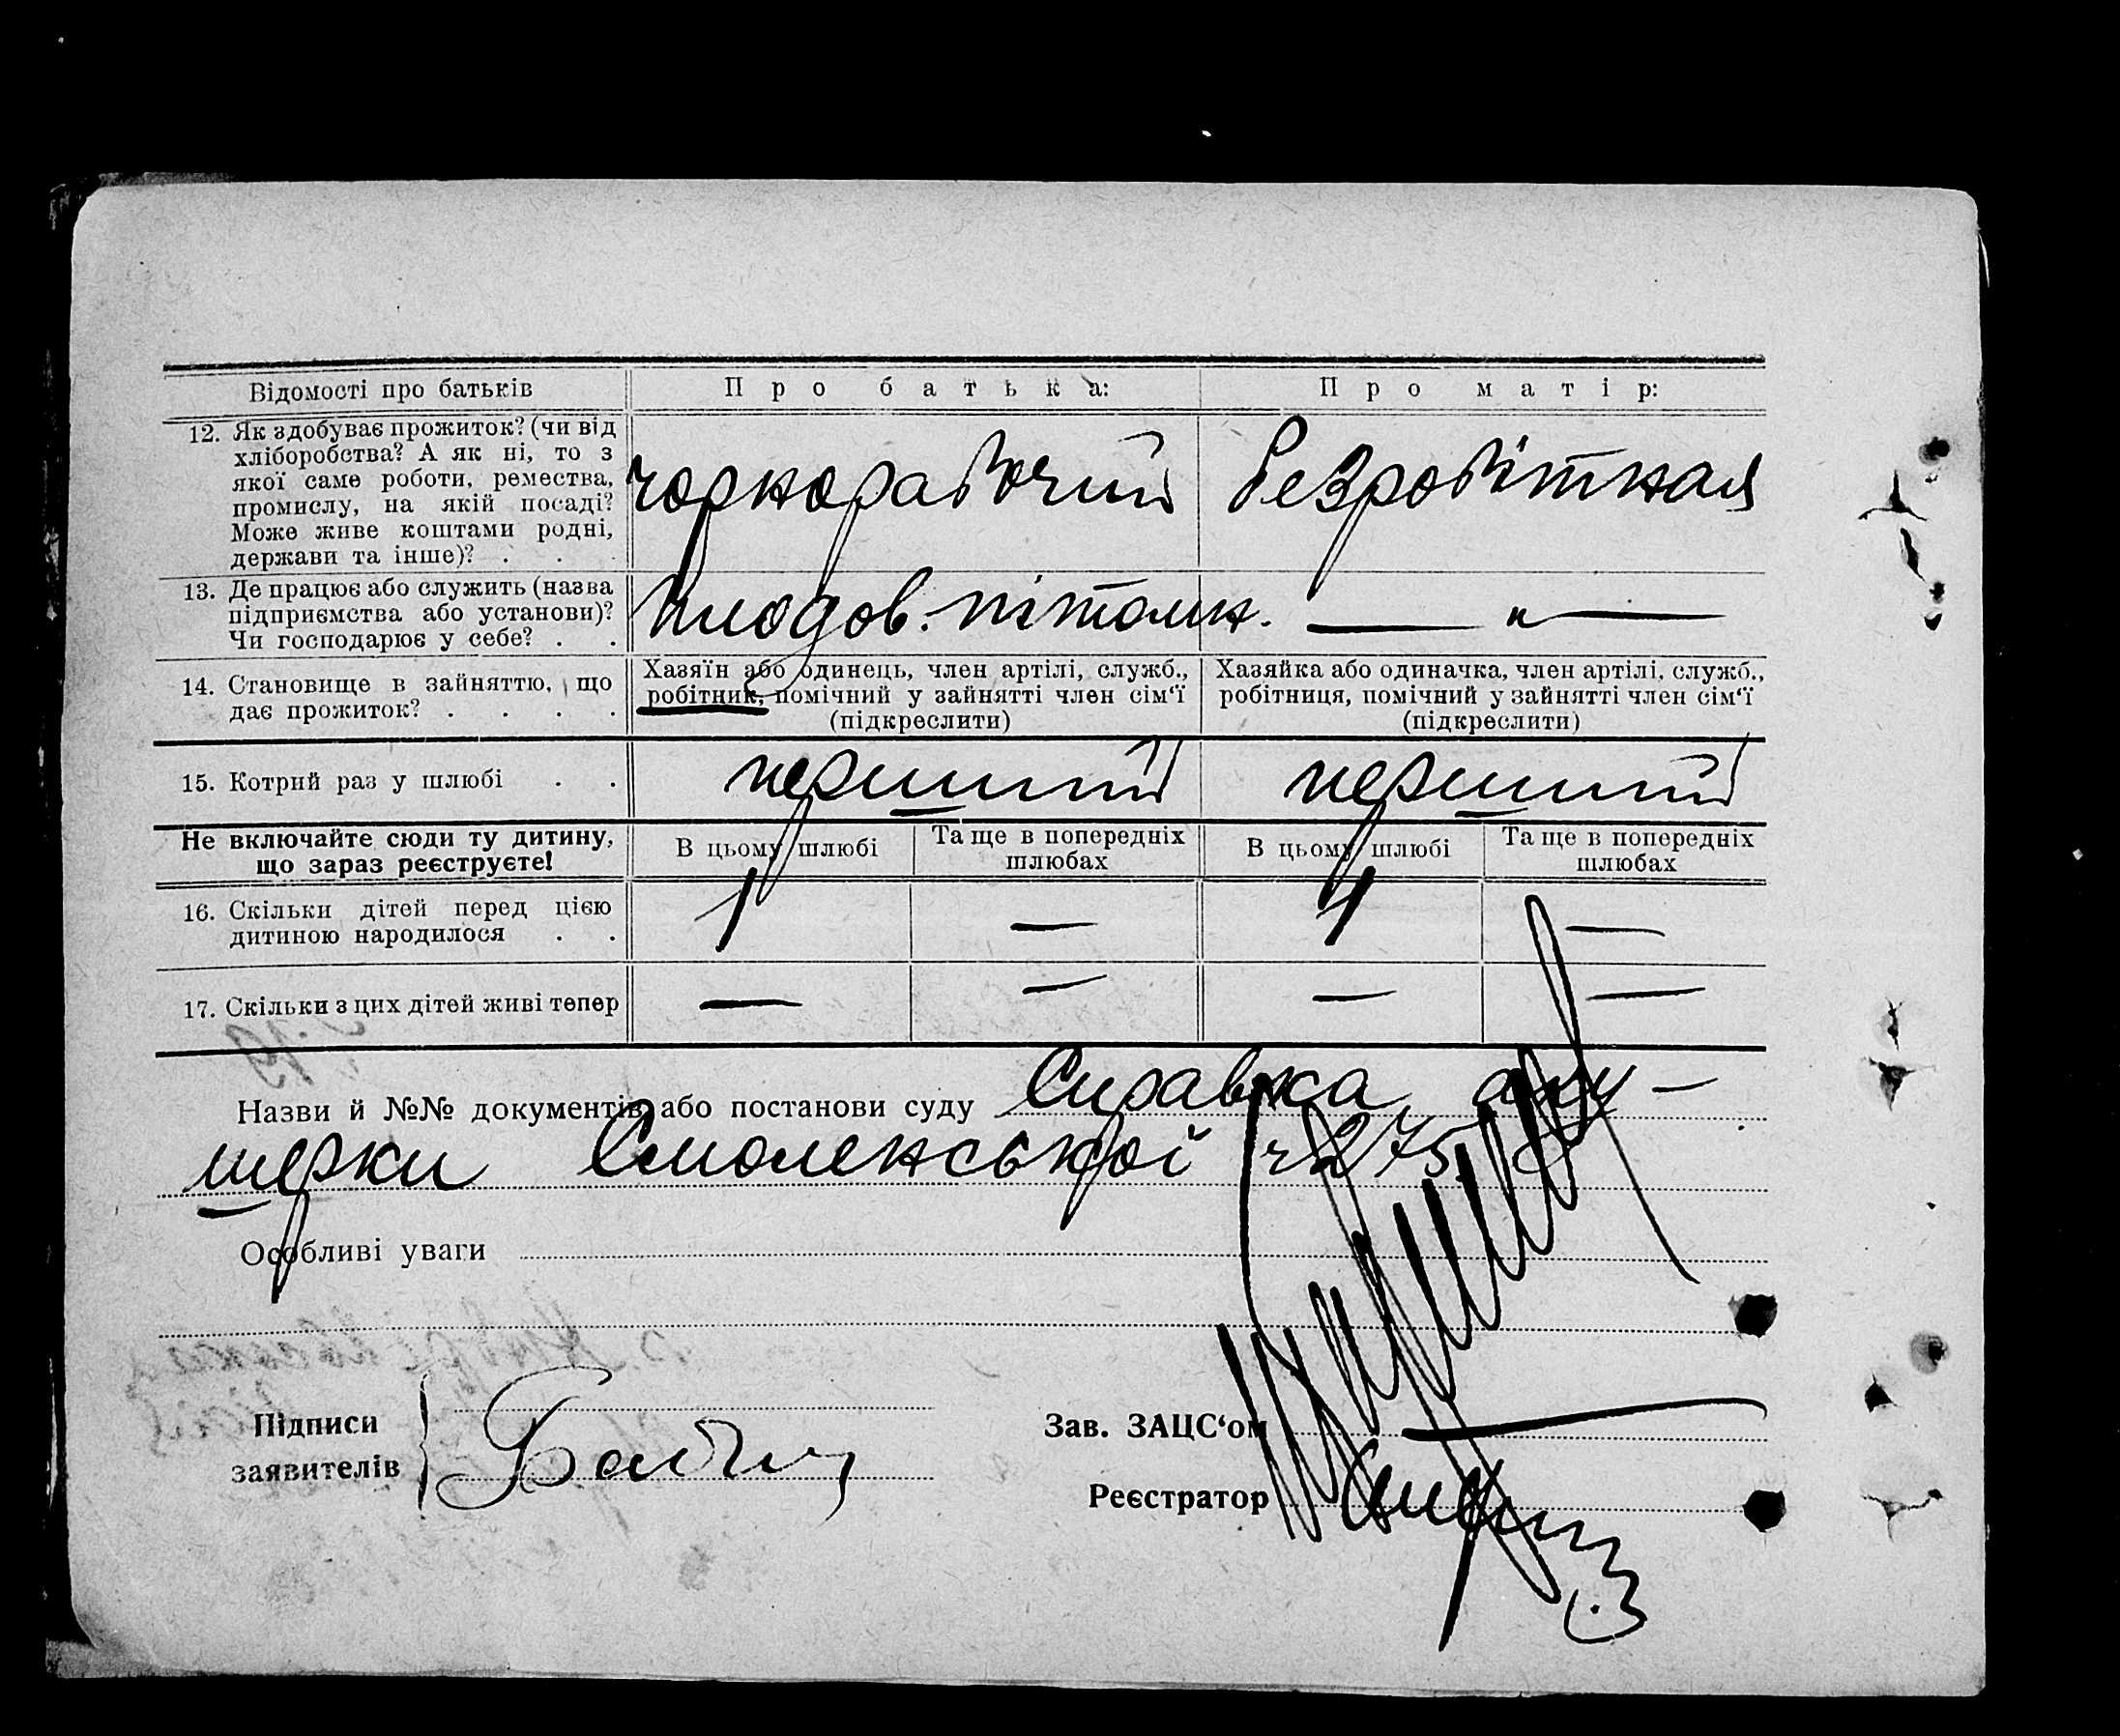 Відомості про батьків
Про батька:
Про матір:
12. Як здобуває прожиток? (чи від
хліборобства? А як ні, то з
якої саме роботи, ремества,
промислу, на якій посаді?
Може живе коштами родні,
держави та інше)? . . .
чорнорабочий
безробітная
13. Де працює або служить (назва
підприємства або установи)?
Чи господарює у себе? . .
плодов. пітомн.
— " —
14. Становище в зайняттю, що
дає прожиток? . . . .
Хазяїн або одинець, член артілі, служб.,
робітник, помічний у зайнятті член сім‘ї
(підкреслити)
Хазяйка або одиначка, член артілі, служб.,
робітниця, помічний у зайнятті член сім‘ї
(підкреслити)
15. Котрий раз у шлюбі . .
перший
перший
Не включайте сюди ту дитину,
що зараз реєструєте!
В цьому шлюбі
Та ще в попередніх
шлюбах
В цьому шлюбі
Та ще в попередніх
шлюбах
16. Скільки дітей перед цією
дитиною народилося . .
1 — 1 —
17. Скільки з цих дітей живі тепер
— — — —
Назви й №№ документів або постанови суду Справка аку-
шерки Смоленської ч 275
Особливі уваги
Підписи
заявителів
Зав. ЗАЦС‘ом
Реєстратор